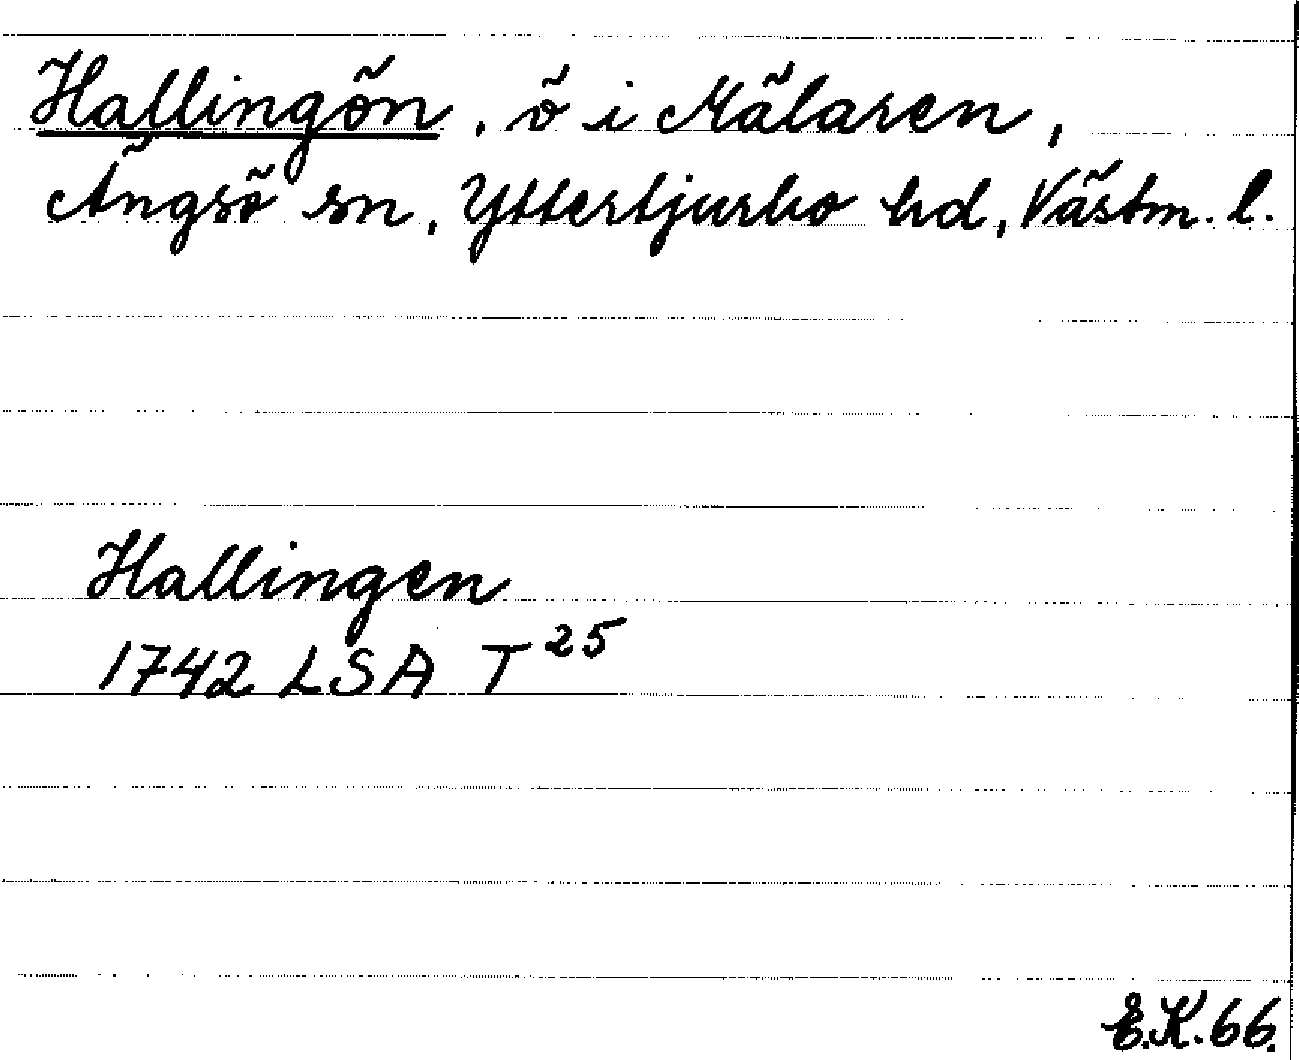 Hallingön, ö i Mälaren,
Ängsö sn, Yttertjurbo hd, Västm. l.
Hallingen
1742 LSA T 25
E.K. 66.